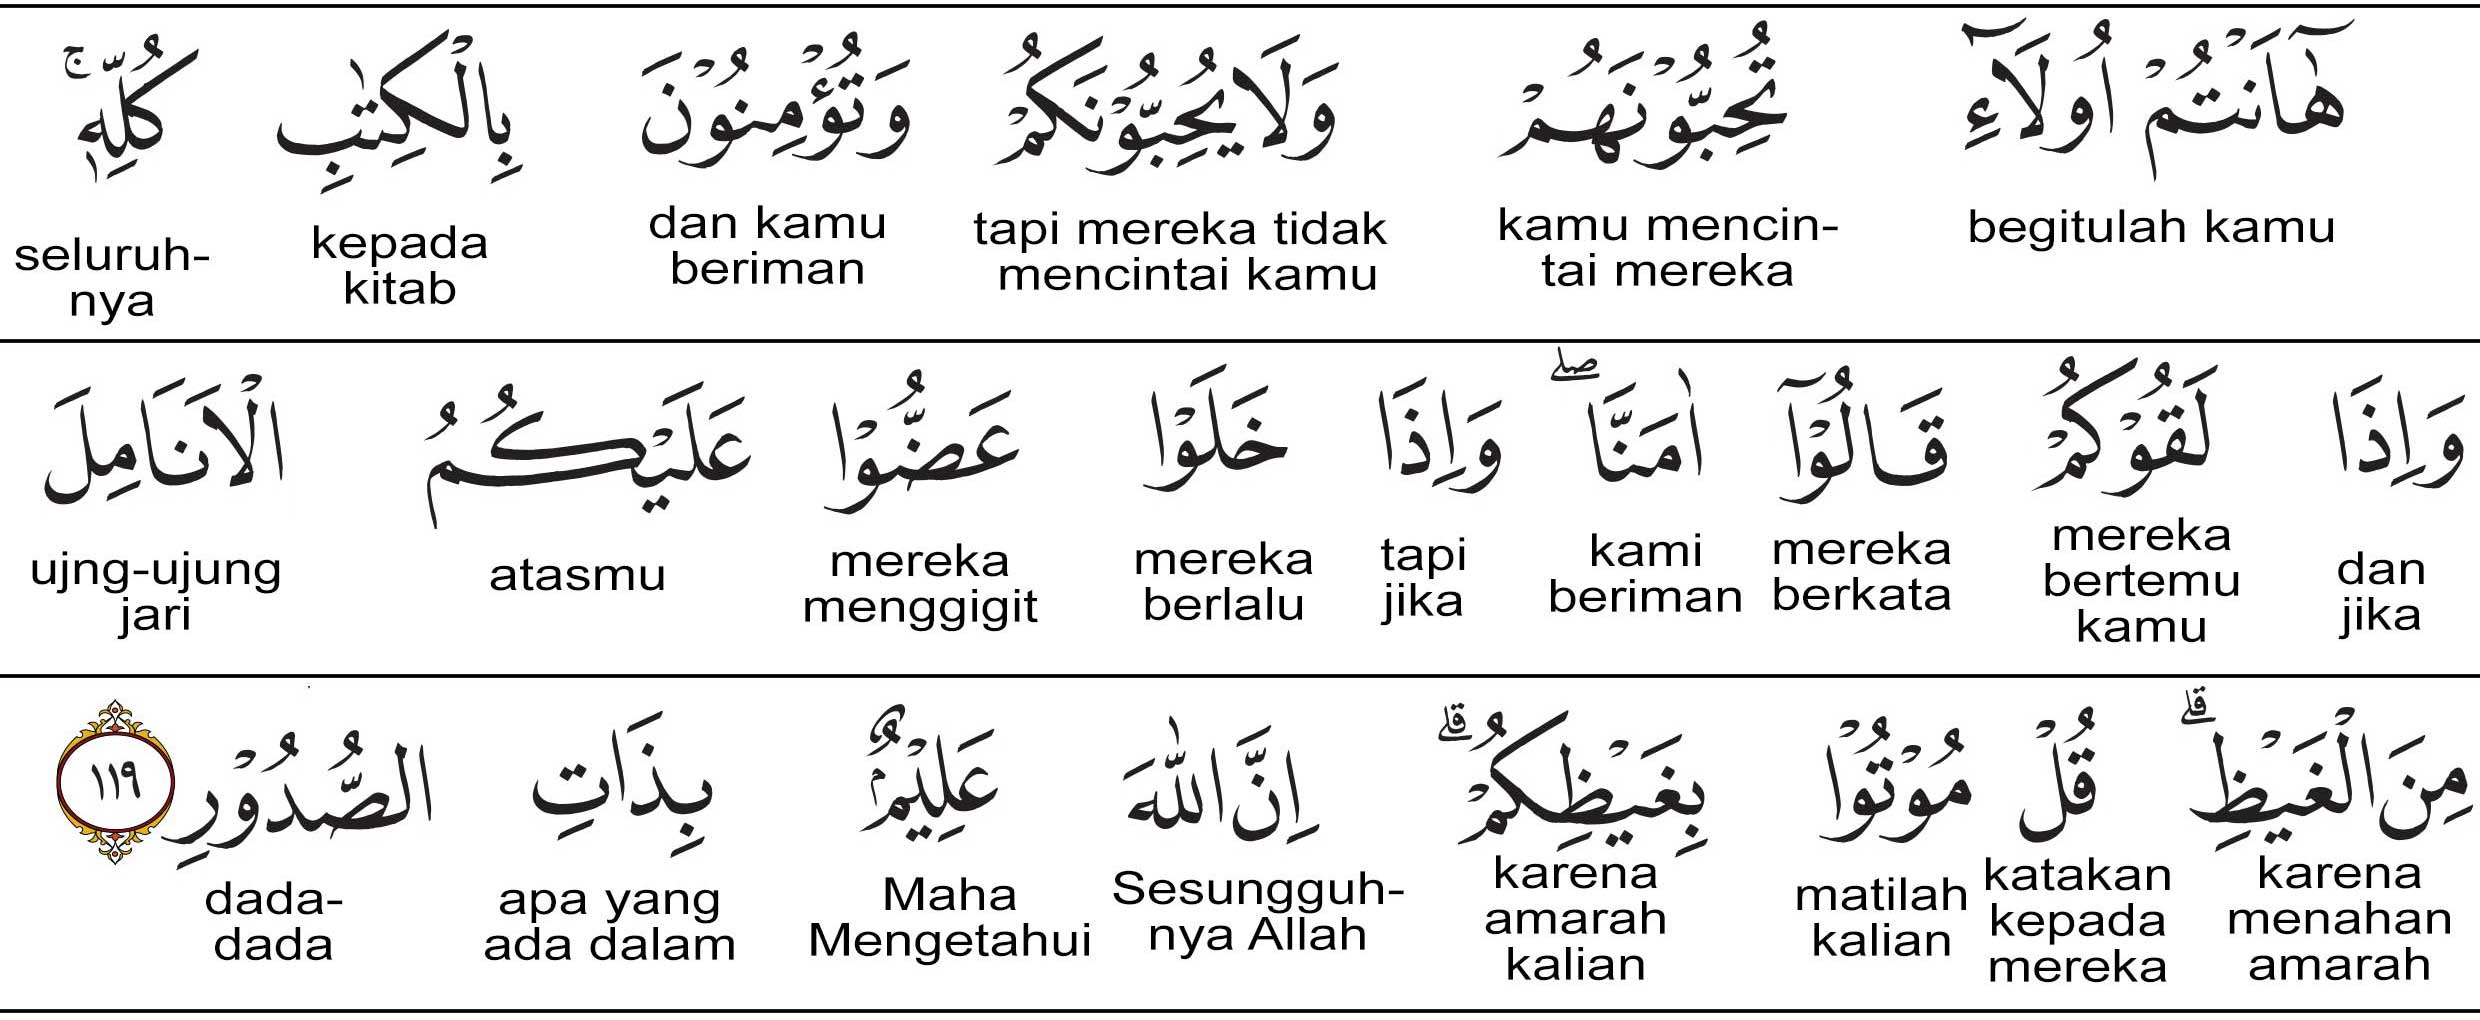 هٰٓاَنْتُمْ اُولَاۤءِ تُحِبُّوْنَهُمْ وَلَا يُحِبُّوْنَكُمْ وَتُؤْمِنُوْنَ بِالْكِتٰبِ كُلِّهٖۚ
begitulah kamu kamu mencin-tai mereka tapi mereka tidak mencintai kamu dan kamu beriman kepada kitab seluruh-nya
وَاِذَا لَقُوْكُمْ قَالُوْٓا اٰمَنَّاۖ وَاِذَا خَلَوْا عَضُّوْا عَلَيْكُمُ الْاَنَامِلَ
dan jika mereka bertemu kamu mereka berkata kami beriman tapi jika mereka berlalu mereka menggigit atasmu ujng-ujung jari
مِنَ الْغَيْظِۗ قُلْ مُوْتُوْا بِغَيْظِكُمْۗ اِنَّ اللّٰهَ عَلِيْمٌۢ بِذَاتِ الصُّدُوْرِ ١١٩
karena menahan amarah katakan kepada mereka matilah kalian karena amarah kalian Sesungguh-nya Allah Maha Mengetahui apa yang ada dalam dada-dada